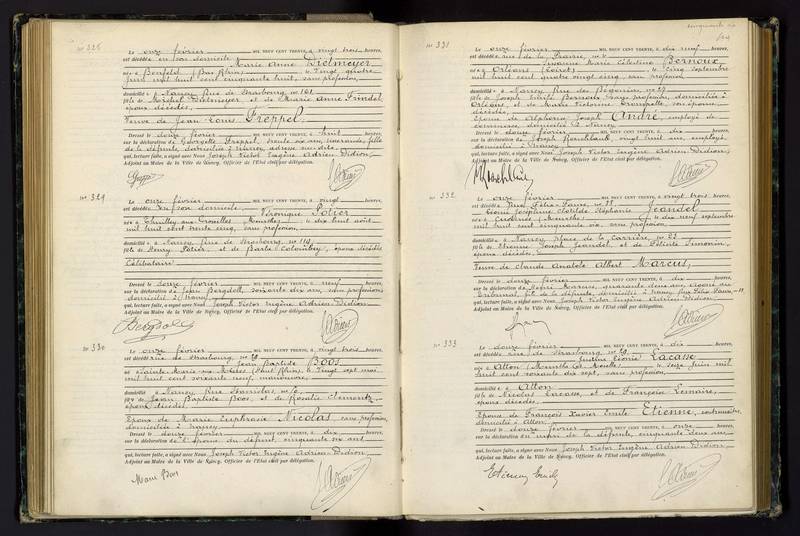 n° 328
Le onze février MIL NEUF CENT TRENTE, à vingt trois heures,
est décédée en son domicile Marie Anne Dielmeyer
née à Benfeld (Bas Rhin) le vingt quatre
mil huit cent cinquante huit, sans profession,
domiciliée à Nancy Rue de Strasbourg, n° 161
fille de Michel Dielmeyer, et de Marie Anne Frindel
époux décédés,
Veuve de Jean Louis Freppel
Dressé le douze février MIL NEUF CENT TRENTE, à huit heures,
sur la déclaration de Georgette Freppel, trente six ans, fille
de la défunte, domiciliée à Nancy, adresse sus-dite,
qui, lecture faite, a signé avec Nous Joseph Victor Eugène Adrien Didion
Adjoint au Maire de la Ville de Nancy, Officier de l'Etat civil par délégation.
n° 329
Le onze février MIL NEUF CENT TRENTE, à vingt heures,
est décédée en son domicile Véronique Potier
née à Thuilley-aux-Groseilles (Meurthe) le dix huit août
mil huit cent trente cinq, sans profession,
domiciliée à Nancy, Rue de Strasbourg, n° 119
fille de Henry Potier, et de Barbe Colombey, époux décédés
Célibataire
Dressé le douze février MIL NEUF CENT TRENTE, à neuf heures,
sur la déclaration de Jean Bergdoll, soixante dix ans, sans profession,
domicilié à Nancy
qui, lecture faite, a signé avec Nous Joseph Victor Eugène Adrien Didion
Adjoint au Maire de la Ville de Nancy, Officier de l'Etat civil par délégation.
Bergdoll
n° 330
Le onze février MIL NEUF CENT TRENTE, à vingt trois heures,
est décédé rue de Strasbourg, n°
Jean Baptiste Boos
né à Sainte Marie aux Mines (Haut Rhin) le vingt sept mai
mil huit cent soixante neuf, manœuvre,
domicilié à Nancy Rue Stanislas, n°
fils de Jean Baptiste Boos, et de Rosalie Clementz
époux décédés,
Epoux de Marie Euphrasie Nicolas, sans profession,
domiciliée à Nancy
Dressé le douze février MIL NEUF CENT TRENTE, à dix heures,
sur la déclaration de l'épouse du défunt, cinquante six ans
qui, lecture faite, a signé avec Nous Joseph Victor Eugène Adrien Didion
Adjoint au Maire de la Ville de Nancy, Officier de l'Etat civil par délégation.
n° 331
Le onze février MIL NEUF CENT TRENTE, à dix neuf heures,
est décédée rue de la Prairie, n°
Suzanne Marie Célestine Bernoux
née à Orléans (Loiret) le cinq septembre
mil huit cent quatre vingt cinq, sans profession
domiciliée à Nancy Rue des Bégonias, n° 27
fille de Joseph Bernoux, sans profession, domicilié à
Orléans, et de Marie Victorine son épouse
décédée,
Epouse de Alphonse Joseph André, employé de
commerce, domicilié à Nancy
Dressé le douze février MIL NEUF CENT TRENTE, à dix heures,
sur la déclaration de Joseph vingt huit ans, employé,
domicilié à Nancy
qui, lecture faite, a signé avec Nous Joseph Victor Eugène Adrien Didion
Adjoint au Maire de la Ville de Nancy, Officier de l'Etat civil par délégation.
n° 332
Le onze février MIL NEUF CENT TRENTE, à vingt trois heures,
est décédée Rue Félix Faure, n°
Joséphine Clotilde Stéphanie Jeandel
née à (Meurthe) le dix neuf septembre
mil huit cent cinquante six, sans profession,
domiciliée à Nancy, place de la Carrière, n° 25
fille de Etienne Joseph Jeandel, et de Félicité Simonin,
époux décédés,
Veuve de Claude Anatole Albert Marcus,
Dressé le douze février MIL NEUF CENT TRENTE, à dix heures,
sur la déclaration de Marcus, quarante deux ans,
Tribunal, fils de la défunte, domicilié à Nancy, rue Félix Faure
qui, lecture faite, a signé avec Nous Joseph Victor Eugène Adrien Didion
Adjoint au Maire de la Ville de Nancy, Officier de l'Etat civil par délégation.
n° 333
Le douze février MIL NEUF CENT TRENTE, à dix heures,
est décédée rue de Strasbourg, n°
Justine Léonie Lacasse
née à Atton (Meurthe et Moselle) le seize juin mil
huit cent soixante dix sept, sans profession,
domiciliée à Atton
fille de Nicolas Lacasse, et de Françoise Lemaire,
époux décédés,
Epouse de François Xavier Emile Etienne,
domicilié à Atton
Dressé le douze février MIL NEUF CENT TRENTE, à onze heures,
sur la déclaration du mari de la défunte, cinquante deux ans,
qui, lecture faite, a signé avec Nous Joseph Victor Eugène Adrien Didion
Adjoint au Maire de la Ville de Nancy, Officier de l'Etat civil par délégation.
Etienne Emile